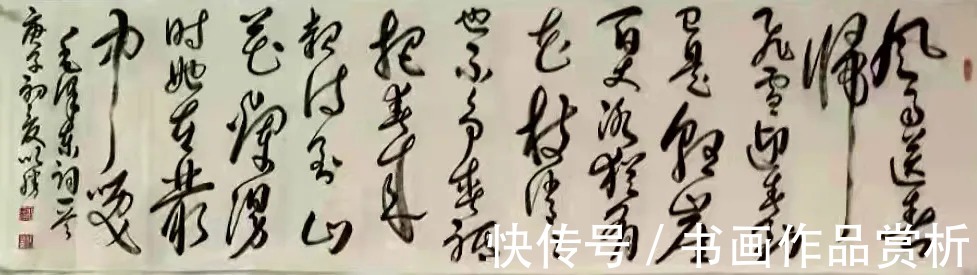 風雨送春
歸
飞雪迎春到
已是懸崖
百丈冰犹有
花枝俏俏
也不争春祇
把春来
报待到山
花爛漫
时她在叢
中笑
毛泽东词一首
庚子初夏
快传号 / 书画作品赏析